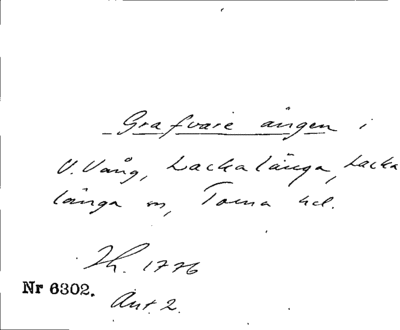 Grafvare ängen i
V. Vång, Lackalänga, Lacka
länga sn, Torna hd.
Th. 1776
Nr 6302.
Ant. 2.